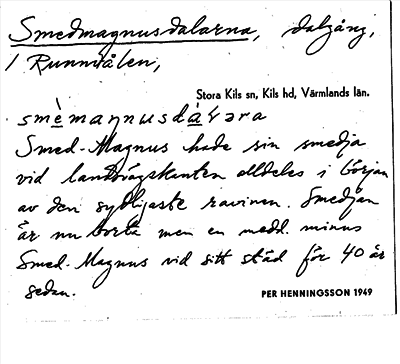 Smedmagnusdalarna, dalgång,
i Runnsålen,
Stora Kils sn, Kils hd, Värmlands län.
smèmaŋnusdáɽara
Smed-Magnus hade sin smedja
vid landsvägskanten alldeles i början
av den sydligaste ravinen. Smedjan
är nu borta men en medd. minns
Smed-Magnus vid sitt städ för 40 år
sedan.
PER HENNINGSSON 1949